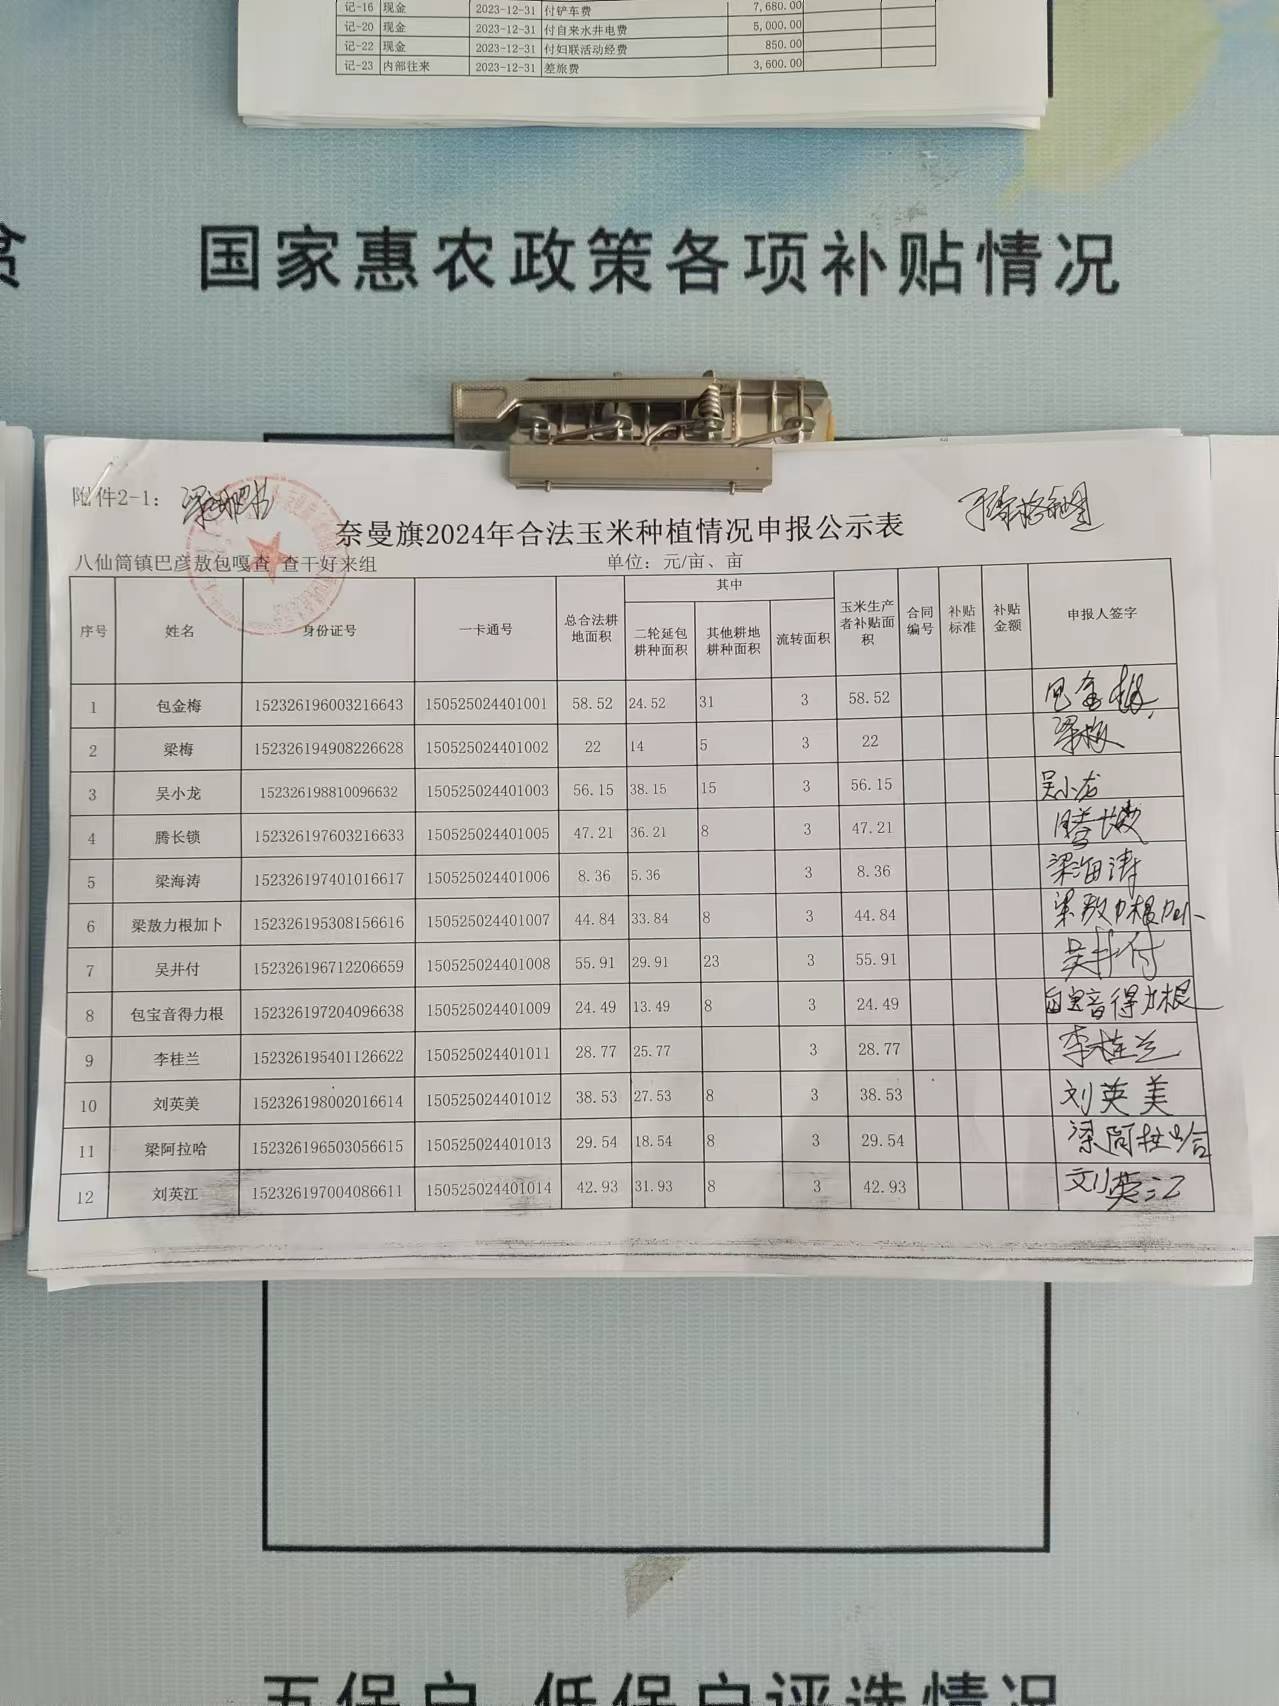 记-16 现金 2023-12-31 付铲车费 7,680.00
记-20 现金 2023-12-31 付自来水井电费 5,000.00
记-22 现金 2023-12-31 付妇联活动经费 850.00
记-23 内部往来 2023-12-31 差旅费 3,600.00
国家惠农政策各项补贴情况
附件2-1:
奈曼旗2024年合法玉米种植情况申报公示表
八仙筒镇巴彦敖包嘎查 查干好来组 单位：元/亩、亩
序号 姓名 身份证号 一卡通号 总合法耕地面积 其中 二轮延包耕种面积 其他耕地耕种面积 流转面积 玉米生产者补贴面积 合同编号 补贴标准 补贴金额 申报人签字
1 包金梅 152326196003216643 150525024401001 58.52 24.52 31 3 58.52 包金梅
2 梁梅 152326194908226628 150525024401002 22 14 5 3 22 梁梅
3 吴小龙 152326198810096632 150525024401003 56.15 38.15 15 3 56.15 吴小龙
4 腾长锁 152326197603216633 150525024401005 47.21 36.21 8 3 47.21
5 梁海涛 152326197401016617 150525024401006 8.36 5.36 3 8.36 梁海涛
6 梁敖力根加卜 152326195308156616 150525024401007 44.84 33.84 8 3 44.84 梁敖力根加卜
7 吴井付 152326196712206659 150525024401008 55.91 29.91 23 3 55.91 吴井付
8 包宝音得力根 152326197204096638 150525024401009 24.49 13.49 8 3 24.49 包宝音得力根
9 李桂兰 152326195401126622 150525024401011 28.77 25.77 3 28.77 李桂兰
10 刘英美 152326198002016614 150525024401012 38.53 27.53 8 3 38.53 刘英美
11 梁阿拉哈 152326196503056615 150525024401013 29.54 18.54 8 3 29.54 梁阿拉哈
12 刘英江 152326197004086611 150525024401014 42.93 31.93 8 3 42.93 刘英江
五保户 低保户评选情况